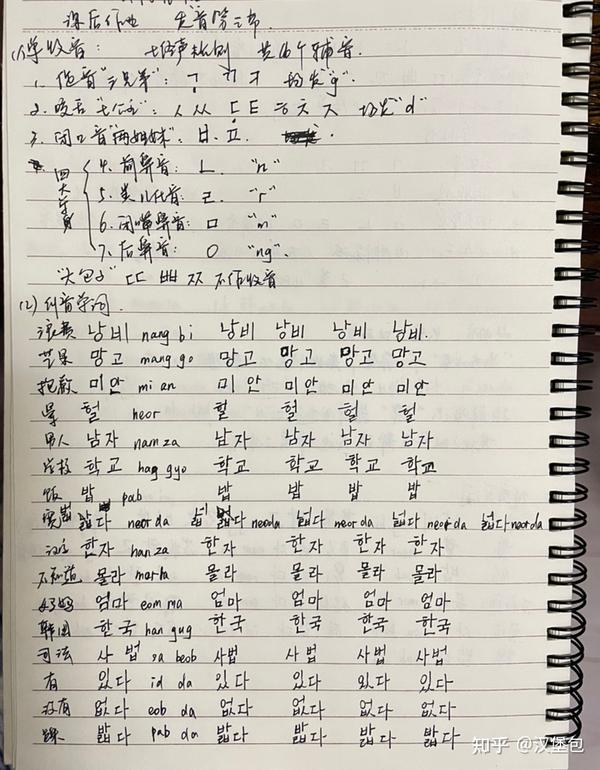 课后作业 发音第三部
(1) 学收音: 共16个辅音.
1. 低音"三兄弟": ㄱ ㄲ ㅋ 均发"g"
2. "七公主": ㅅ ㅆ ㄷ ㅌ ㅎ ㅊ ㅈ 均发"d"
3. 闭口音"两姐妹": ㅂ. ㅍ.
四大
4. 前鼻音: ㄴ "n"
5. 类儿化音: ㄹ "r"
6. 闭嘴鼻音: ㅁ "m"
7. 后鼻音: ㅇ "ng".
"大包子" ㄸ ㅃ ㅉ 不作收音
(2) 纠音单词.
浪费 낭비 nang bi 낭비 낭비 낭비 낭비.
芒果 망고 mang go 망고 망고 망고 망고
抱歉 미안 mi an 미안 미안 미안 미안
헐 heor 헐 헐 헐 헐
男人 남자 nam za 남자 남자 남자 남자
学校 학교 hag gyo 학교 학교 학교 학교
饭 밥 pab 밥 밥 밥 밥
宽敞 넓다 neor da 넓다 neoda 넓다 neor da 넓다 neor da 넓다 neorda
汉字 한자 han za 한자 한자 한자 한자
不知道 몰라 mor la 몰라 몰라 몰라 몰라
妈妈 엄마 eom ma 엄마 엄마 엄마 엄마
韩国 한국 han gug 한국 한국 한국 한국
司法 사법 sa beob 사법 사법 사법 사법
有 있다 id da 있다 있다 있다 있다
没有 없다 eob da 없다 없다 없다 없다
踩 밟다 pab da 밟다 밟다 밟다 밟다
知乎 @汉堡包